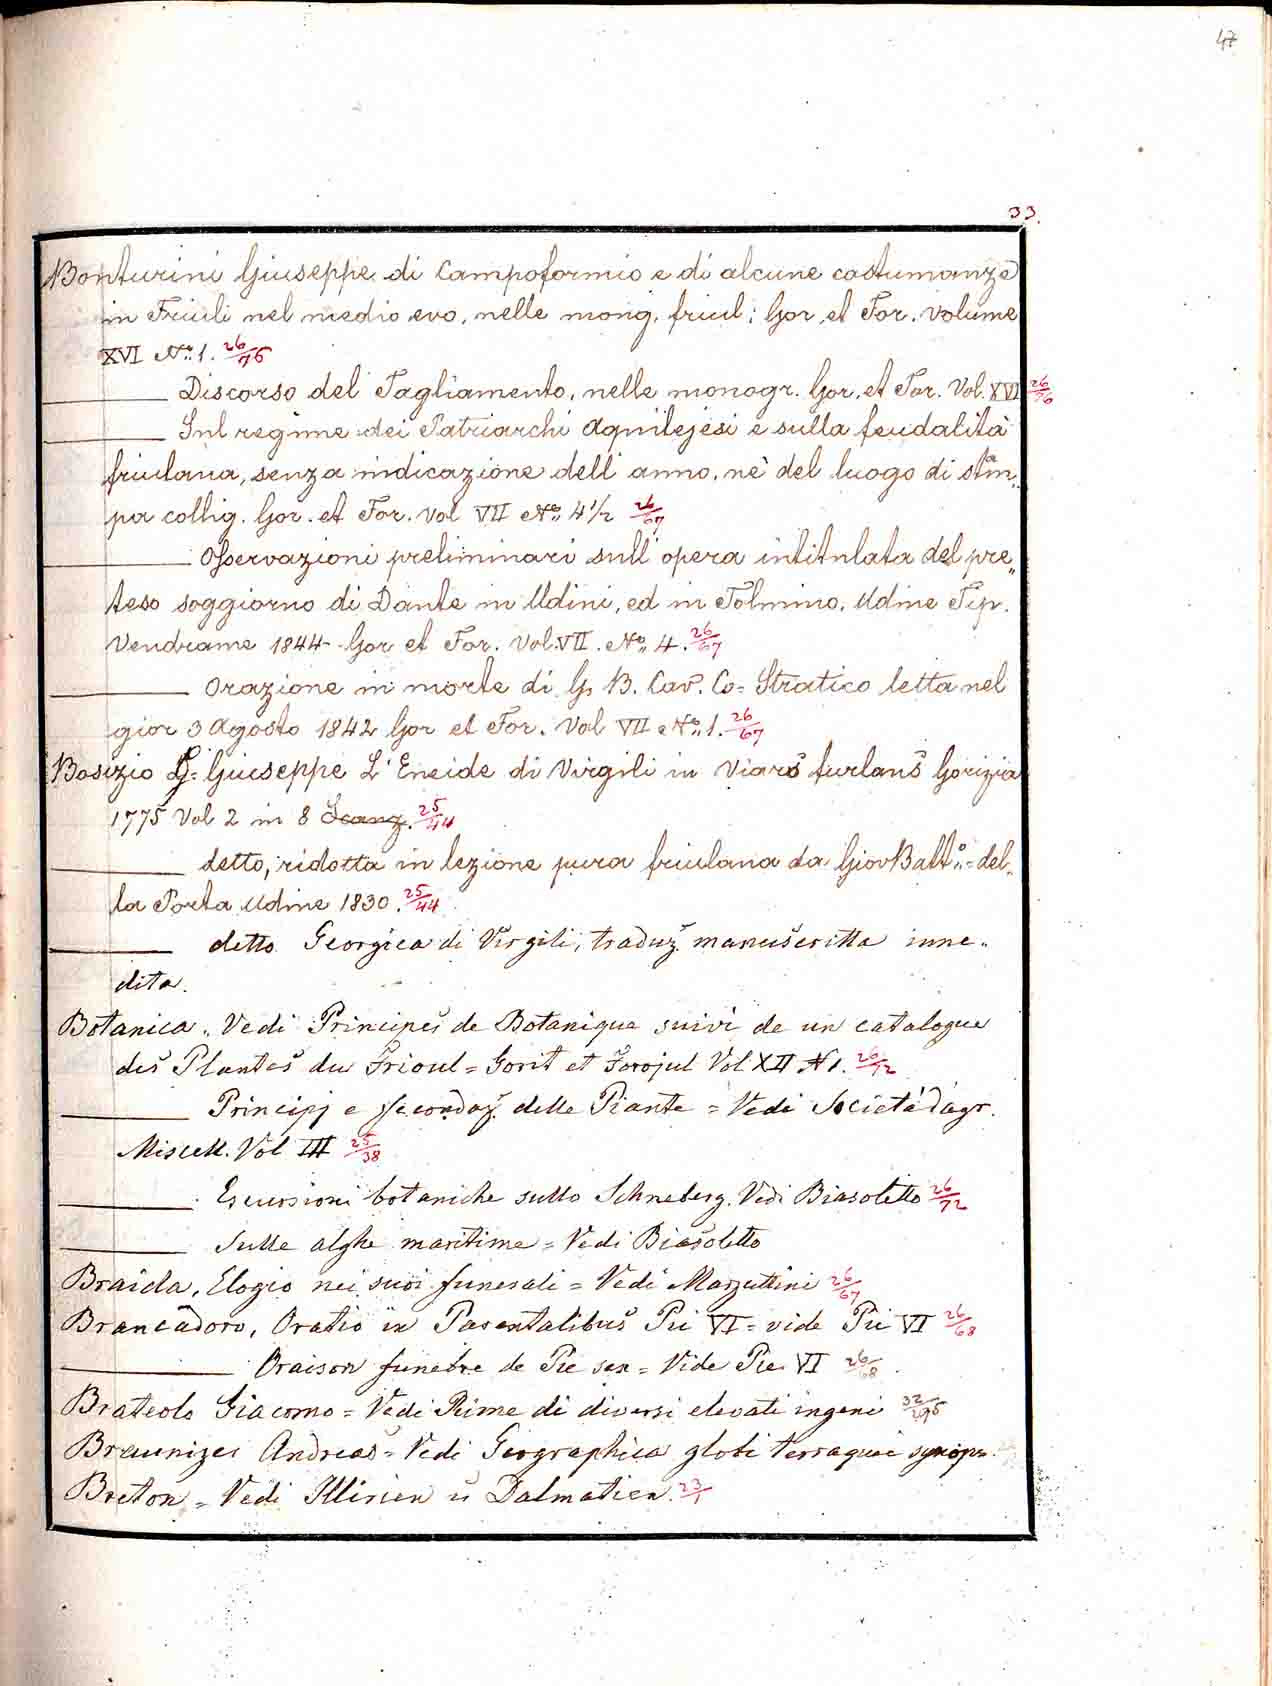 47
33.
Bonturini Giuseppe di Campoformio e di alcune costumanze
in Friuli nel medio evo, nelle mong. friul: Gor. et For. volume
XVI No. 1. 26/76
Discorso del Tagliamento, nelle monogr. Gor. et For. Vol. XVI 26/76
Sul regime dei Patriarchi Aquilejesi e sulla feudalità
friulana, senza indicazione dell anno, nè del luogo di stam„
pa collig. Gor. et For. Vol VII No. 4 1/2 26/67
Osservazioni preliminari sull'opera intitulata del pre„
teso soggiorno di Dante in Udini, ed in Tolmino, Udine Tip.
Vendrame 1844- Gor et For. Vol. VII. No. 4. 26/67
Orazione in morte di G. B. Cav. Co= Stratico letta nel
gior 3 Agosto 1842 Gor et For. Vol VII No. 1. 26/67
Bosizio G= Giuseppe L'Eneide di Virgili in Viars furlans Gorizia
1775 Vol 2 in 8 25/44
detto, ridotta in lezione pura friulana da Giov Batt.= del„
la Porta Udine 1830. 25/44
detto Georgica di Virgili, traduz. manuscritta inne„
dita.
Botanica. Vedi Principes de Botanique suivi de un catalogue
des Plantes du Frioul = Gorit et Forojul Vol XII N 1. 26/72
Principj e fecondaz. delle Piante = Vedi Società d'agr.
Miscell. Vol III 25/38
Escursioni botaniche sullo Schneberg. Vedi Biasoletto 26/72
Sulle alghe maritime = Vedi Biasoletto
Braida, Elogio nei suoi funerali = Vedi Marzuttini 26/67
Brancadoro, Oratio in Parentalibus Pii VI = vide Pii VI 26/68
Oraison funebre de Pie sex = Vide Pie VI 26/68.
Brateolo Giacomo = Vedi Rime di diversi elevati ingeni
Braunizer Andreas = Vedi Geographica globi terraquei synops.
Breton = Vedi Illirien u Dalmatien. 23/1